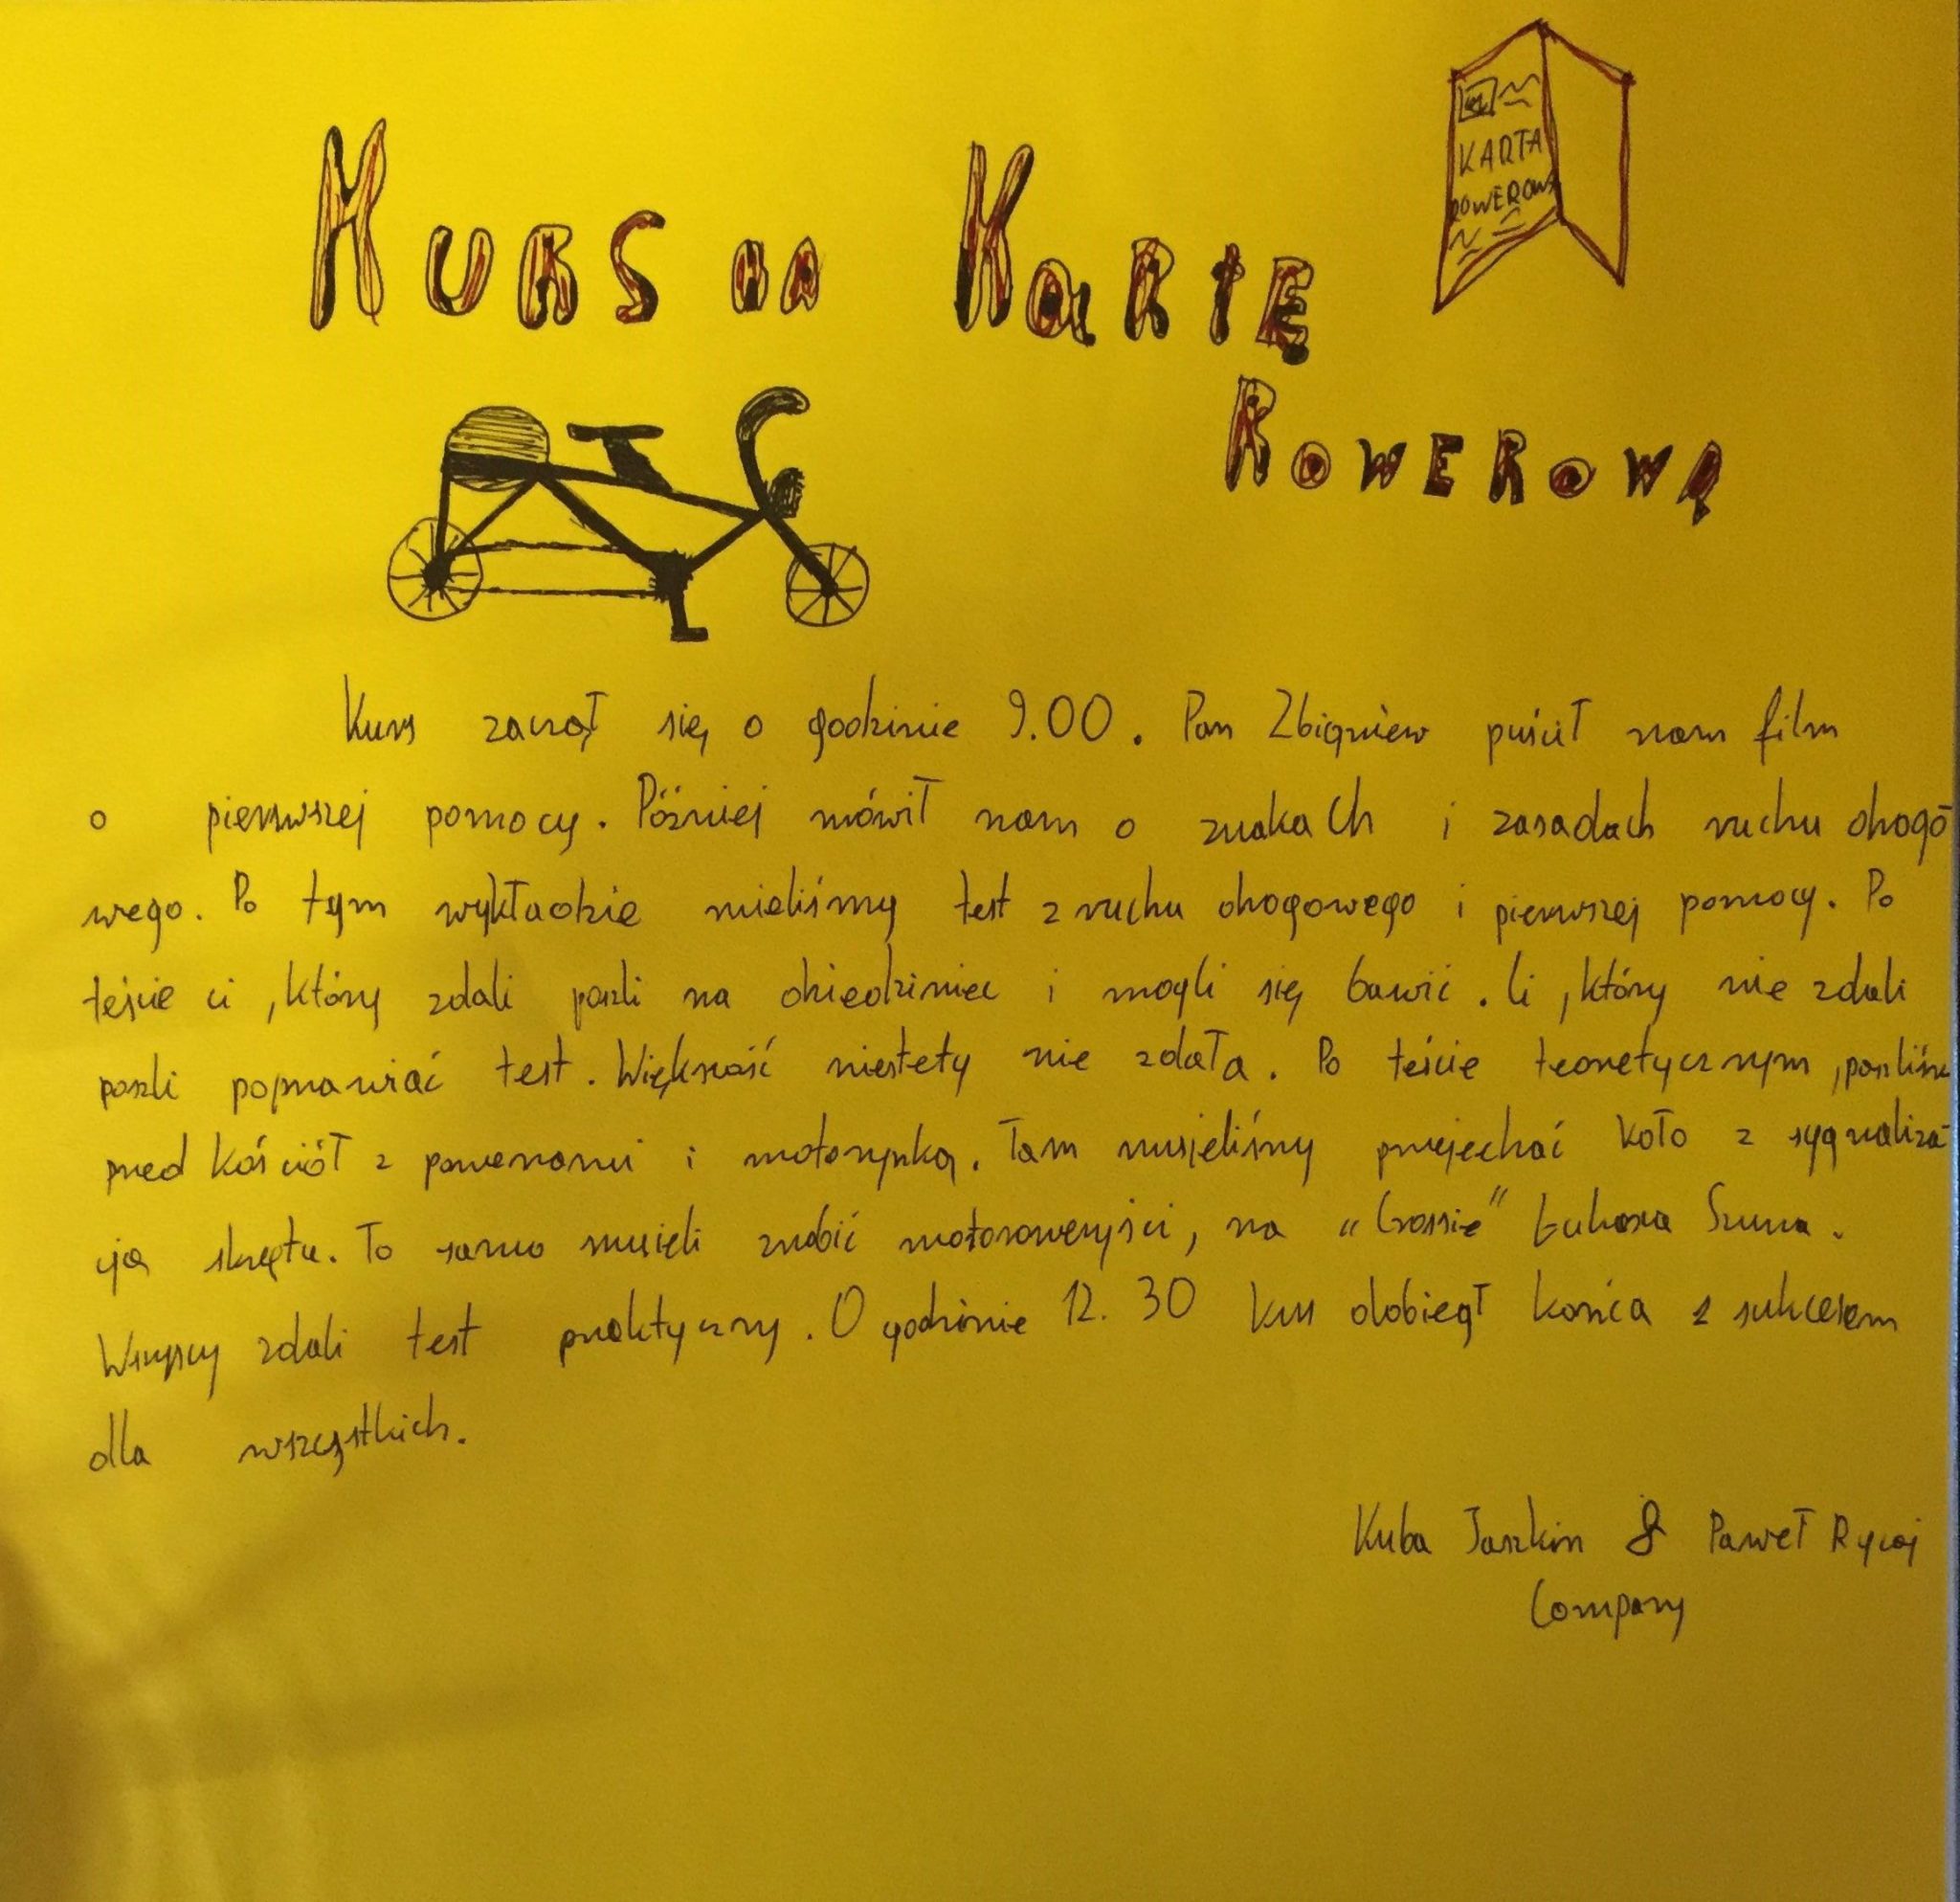 KARTA
ROWEROWA
KURS na KaRtĘ
ROWEROWĄ
Kurs zaczął się o godzinie 9.00. Pan Zbigniew puścił nam film
o pierwszej pomocy. Później mówił nam o znakach i zasadach ruchu drogo-
wego. Po tym wykładzie mieliśmy test z ruchu drogowego i pierwszej pomocy. Po
teście ci, którzy zdali poszli na dziedziniec i mogli się bawić. Ci, którzy nie zdali
poszli poprawiać test. Większość niestety nie zdała. Po teście teoretycznym, poszliśmy
przed kościół z rowerami i motorynką. Tam musieliśmy przejechać koło z sygnaliza-
cją skrętu. To samo musieli zrobić motorowerzyści, na "Crossie" Łukasza
Wszyscy zdali test praktyczny. O godzinie 12.30 kurs dobiegł końca z sukcesem
dla wszystkich.
Kuba Jaszkin & Paweł Rycaj
Company